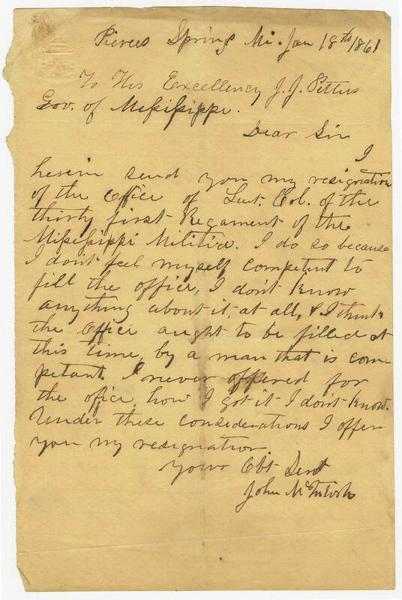 Pierces Spring Mi. Jan 18th 1861
To His Excellency J. J. Pettus
Gov. of Missisippi.
Dear Sir
I
herein send you my resignation
of the office of Lut. Col. of the
thirty first Regament of the
Missisippi Militia. I do so because
I dont feel myself competent to
fill the office, I don't know
anything about it, at all, & I think
the office aught to be filled at
this time, by a man that is com
petant, I never offered for
the ofice, how I got it I don't know.
Under these considerations I offer
you my resignation
Your Obt Servt
John McIntosh